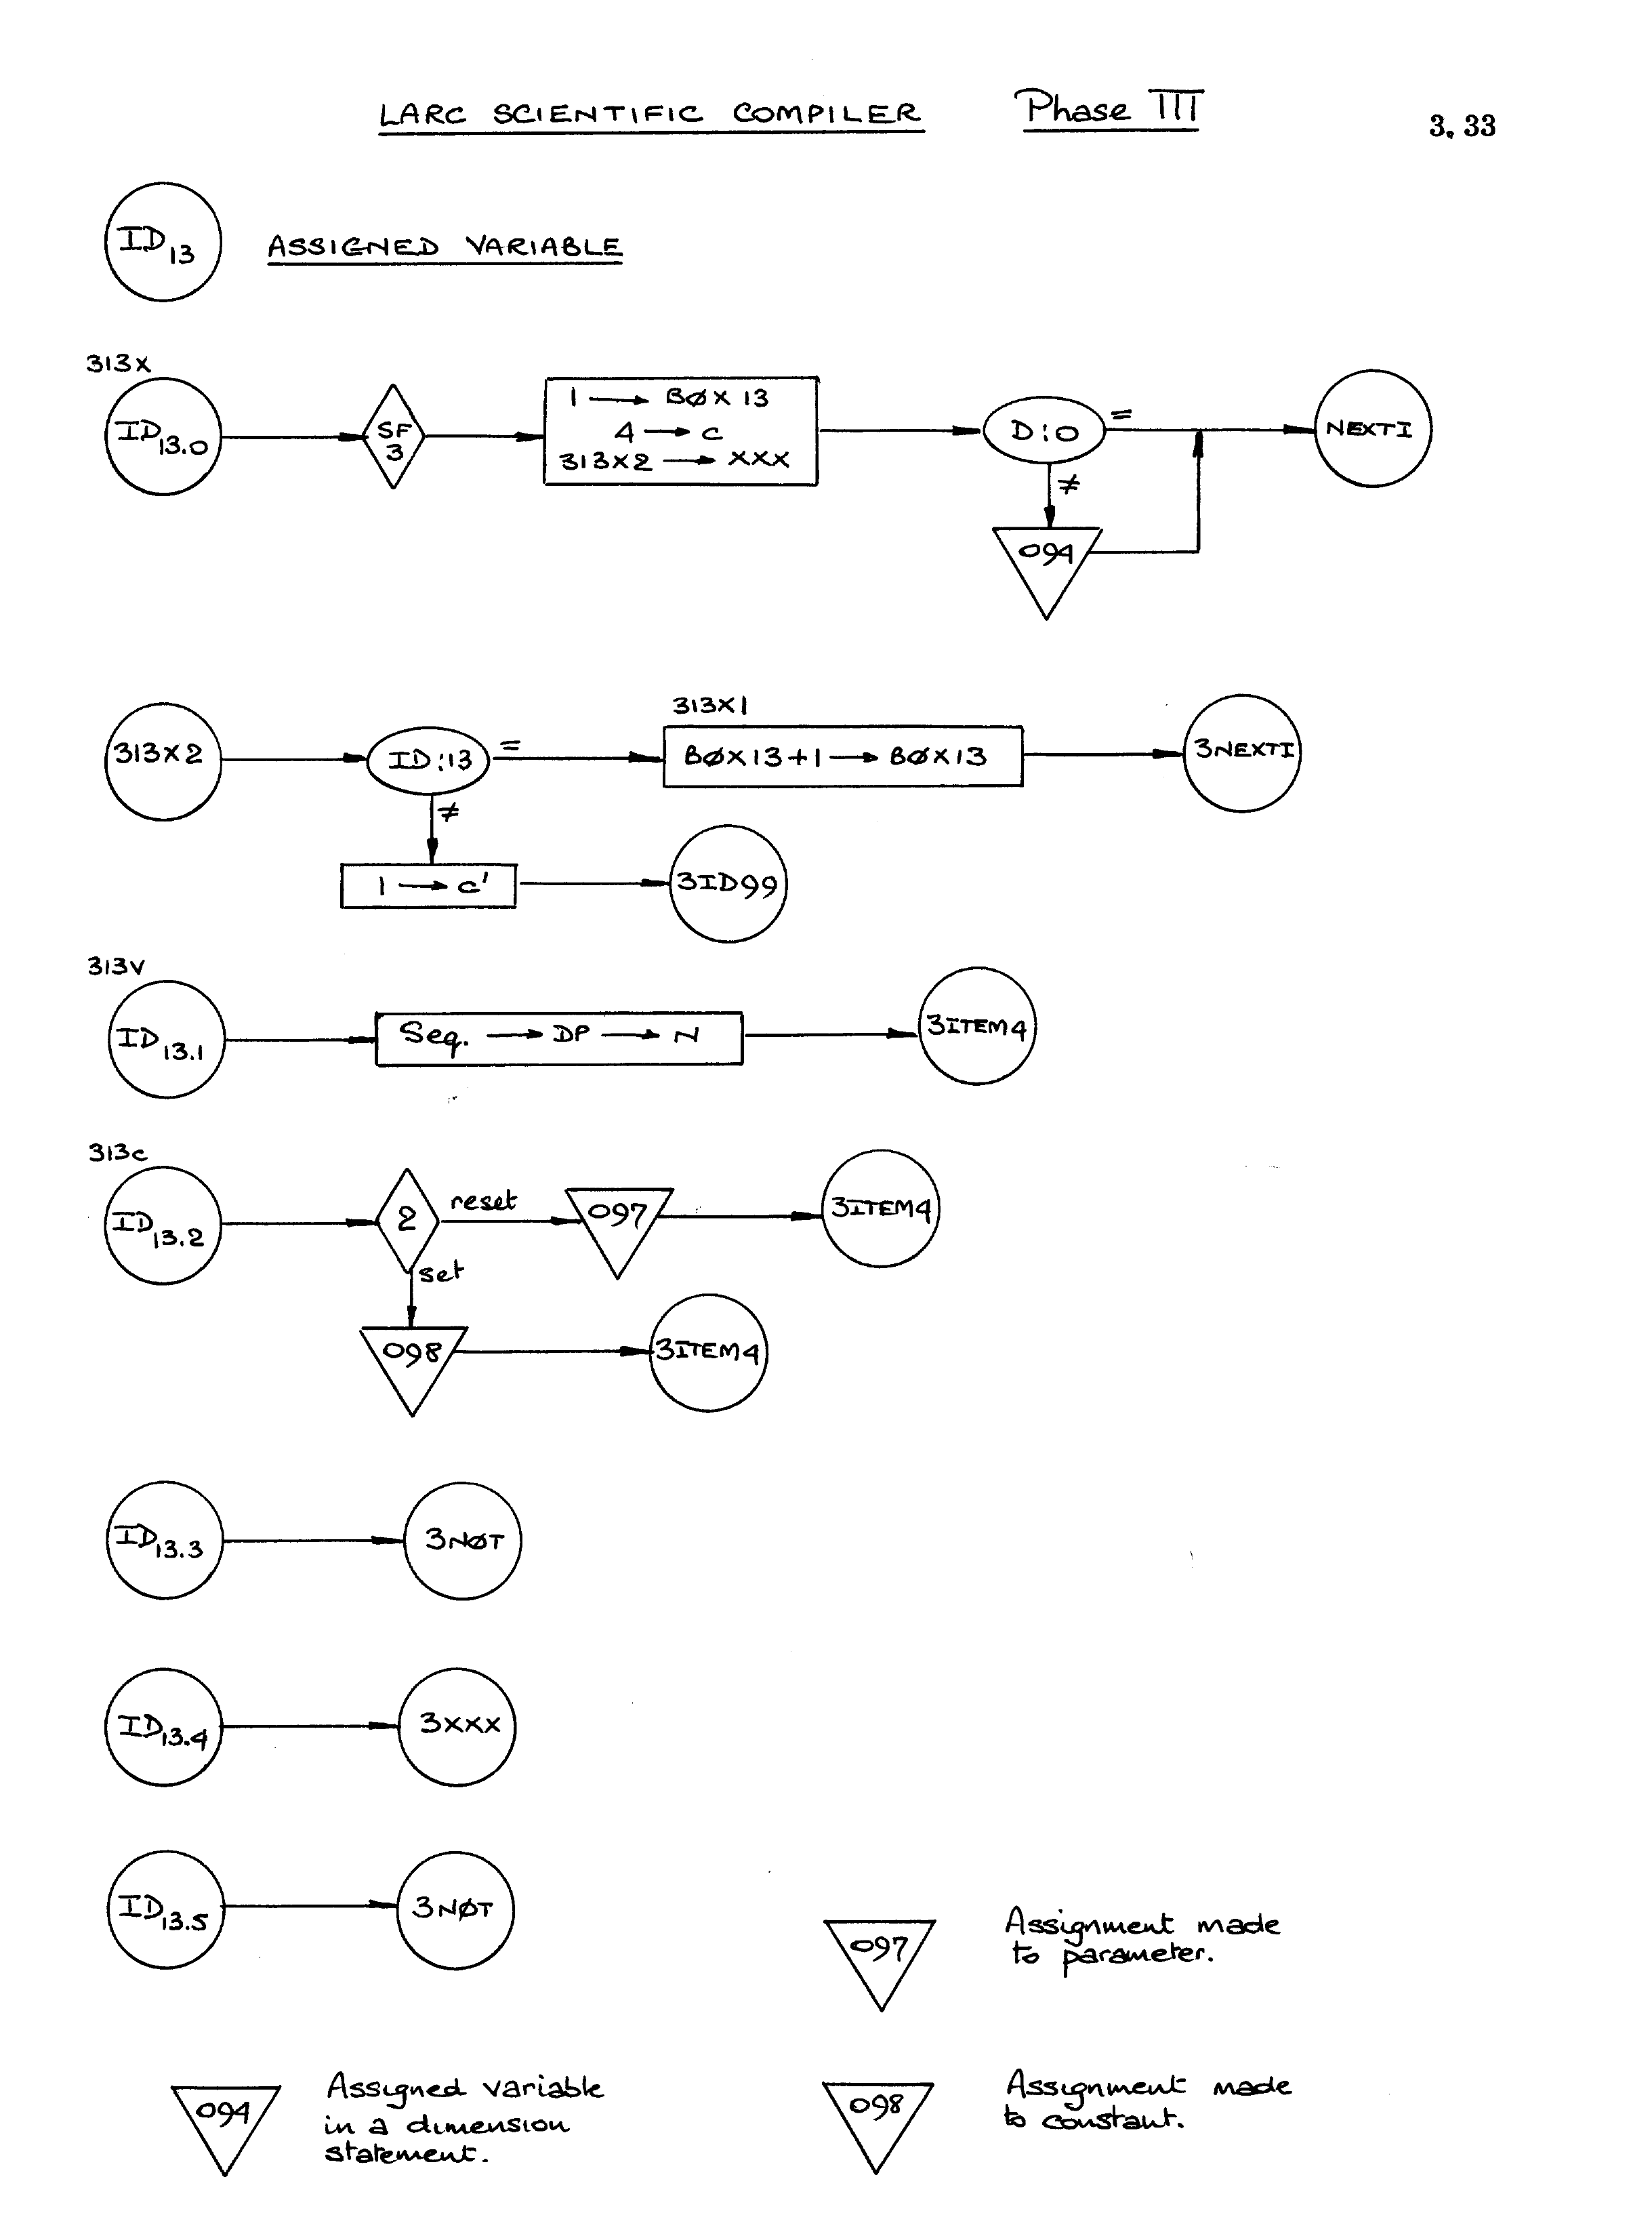 LARC SCIENTIFIC COMPILER Phase III 3.33
ID13 ASSIGNED VARIABLE
313X
ID13.0
SF
3
1 → BØX13
4 → C
313X2 → XXX
D:0
=
NEXTI
≠
094
313X2
ID:13
=
313X1
BØX13+1 → BØX13
3NEXTI
≠
1 → C'
3ID99
313V
ID13.1
Seq. → DP → N
3ITEM4
313C
ID13.2
2
reset
097
3ITEM4
set
098
3ITEM4
ID13.3
3NØT
ID13.4
3XXX
ID13.5
3NØT
097
Assignment made
to parameter.
094
Assigned variable
in a dimension
statement.
098
Assignment made
to constant.